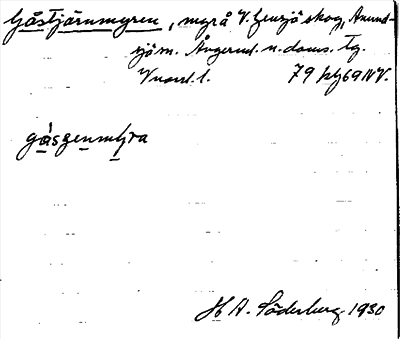 Gåstjärnmyren, myrå V. Gensjö skog, Anund-
sjö sn. Ångermd. n. doms. Tg.
V nord. l. 79 Hg 69 NV.
gåsgenmyra
H A. Söderberg 1930